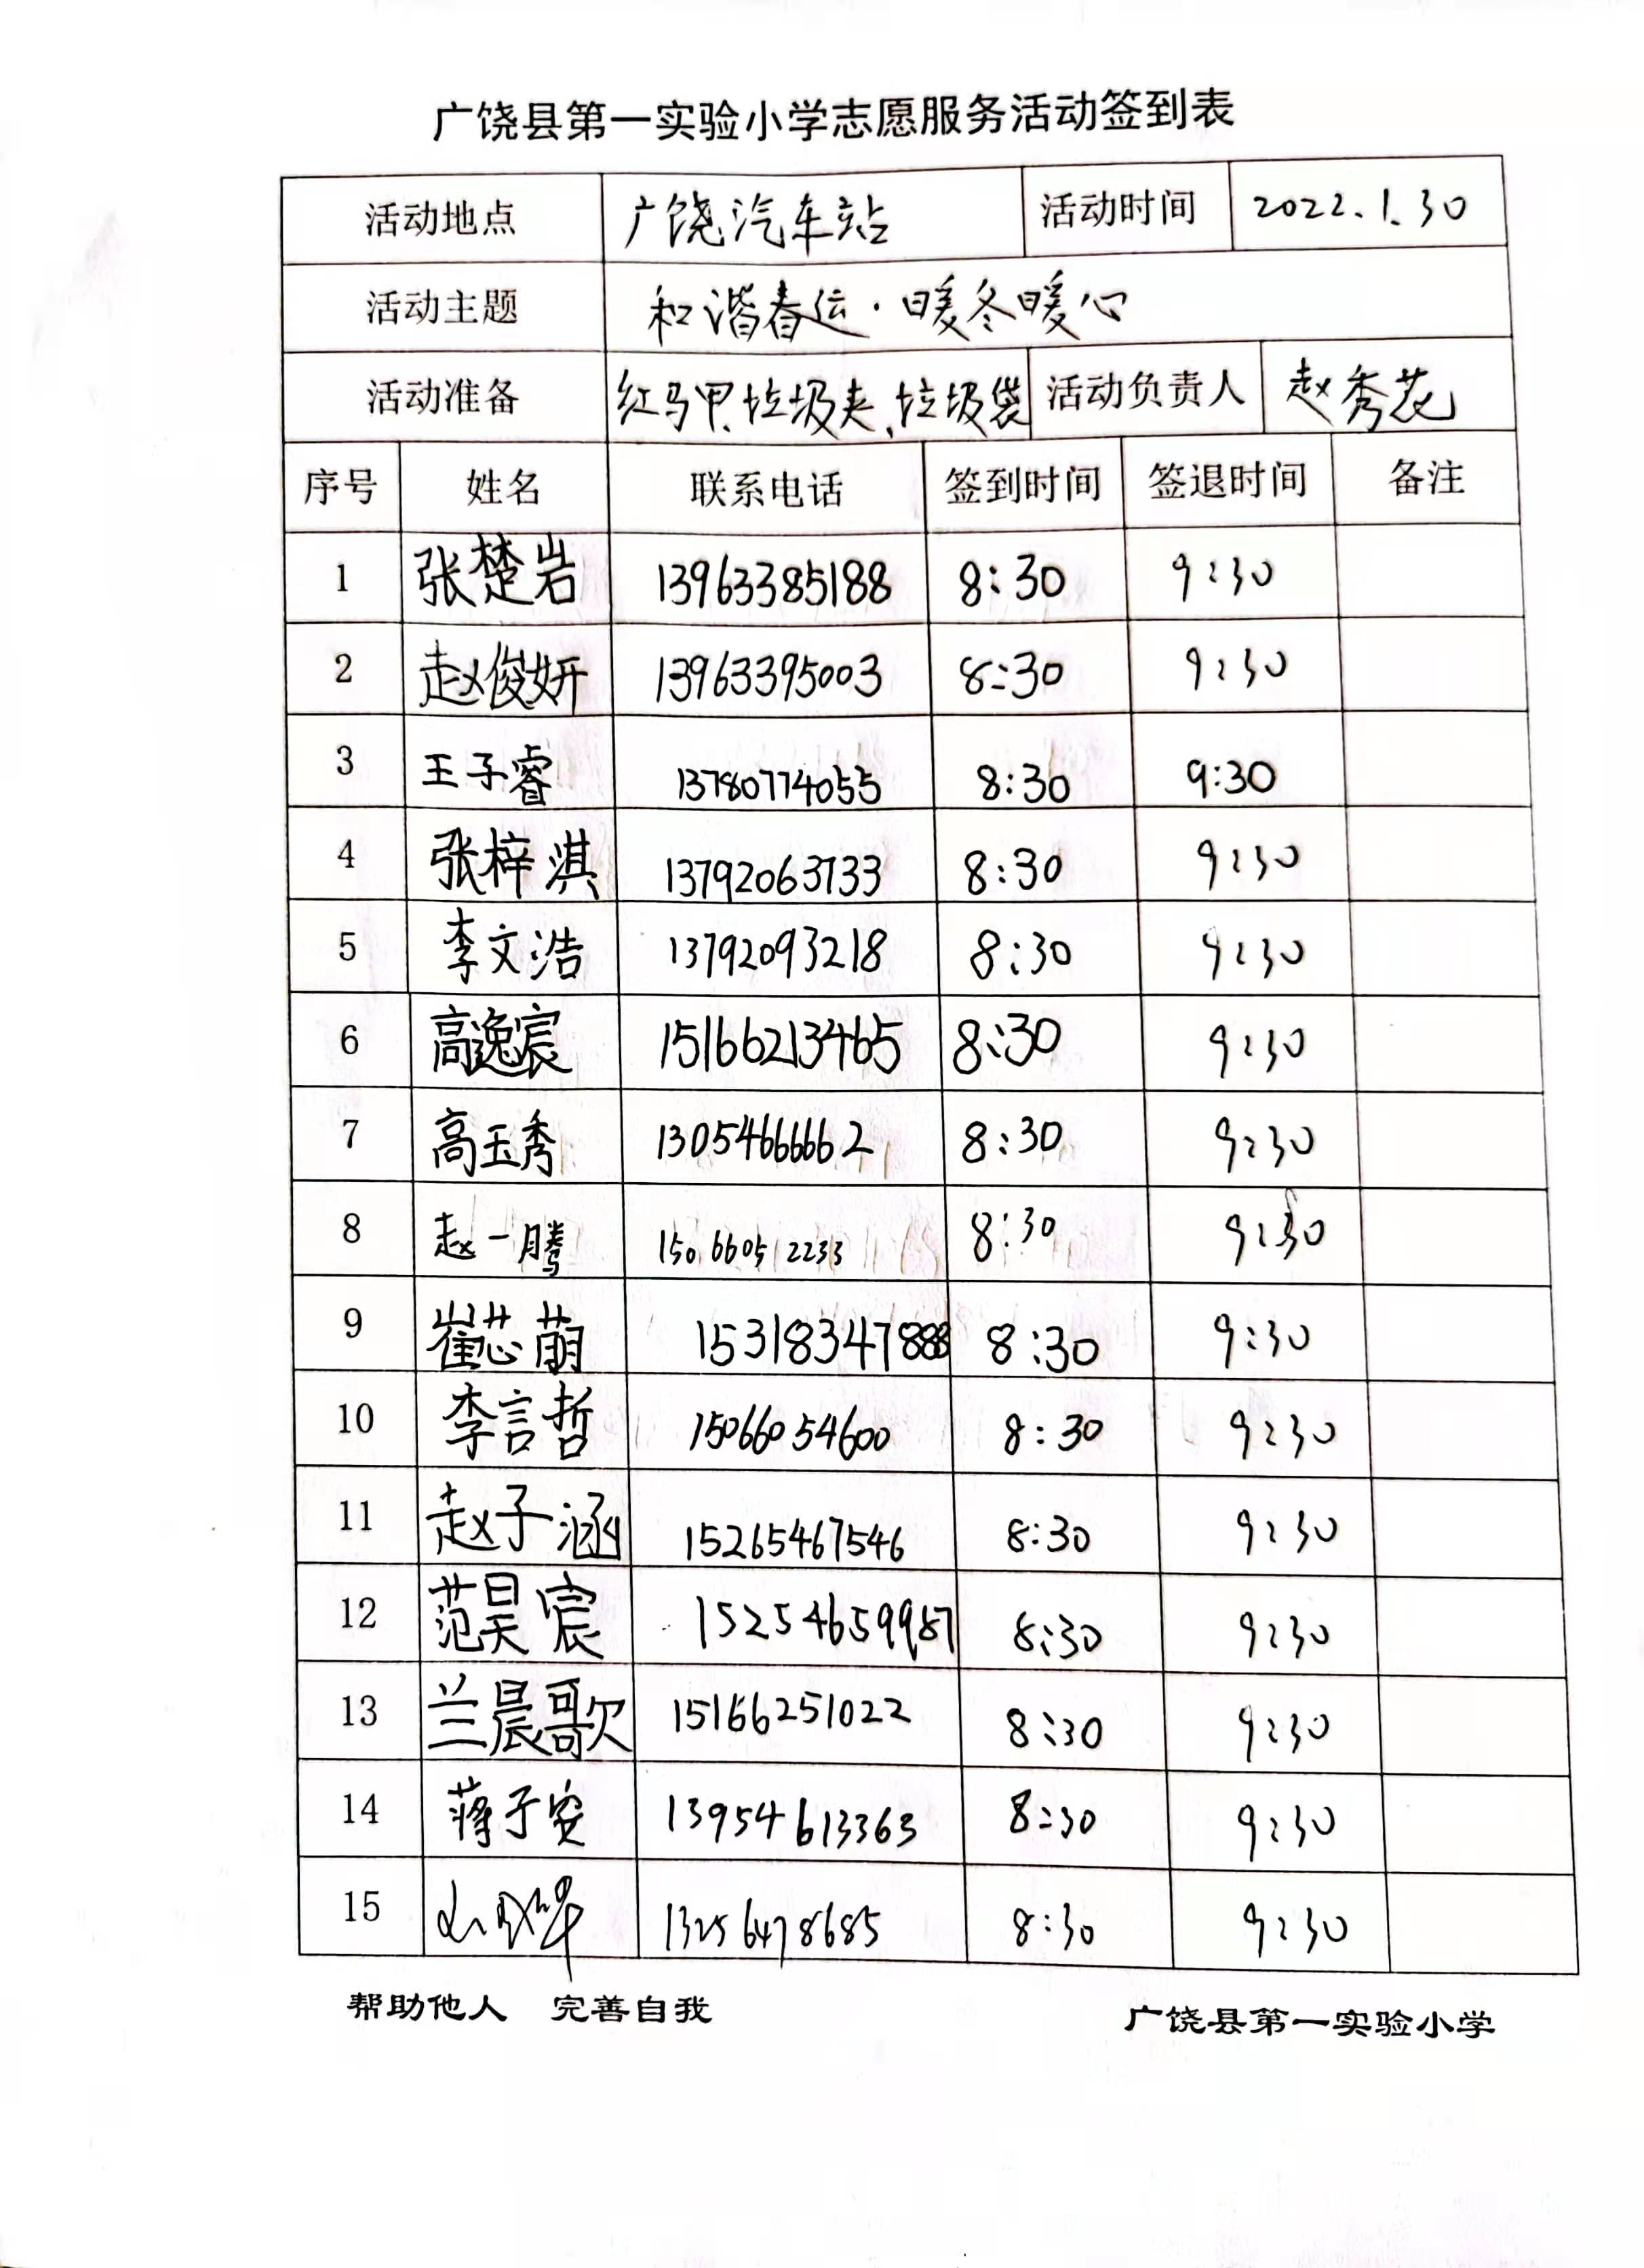 广饶县第一实验小学志愿服务活动签到表
活动地点 广饶汽车站 活动时间 2022.1.30
活动主题 和谐春运·暖冬暖心
活动准备 红马甲、垃圾夹、垃圾袋 活动负责人 赵秀花
序号 姓名 联系电话 签到时间 签退时间 备注
1 张楚岩 13963385188 8:30 9:30
2 赵俊妍 13963395003 8:30 9:30
3 王子睿 13780774055 8:30 9:30
4 张梓淇 13792063733 8:30 9:30
5 李文浩 13792093218 8:30 9:30
6 高逸宸 15166213465 8:30 9:30
7 高玉秀 13054666662 8:30 9:30
8 赵一腾 15066052233 8:30 9:30
9 崔芯萌 15318347888 8:30 9:30
10 李言哲 15066054600 8:30 9:30
11 赵子涵 15265467546 8:30 9:30
12 范昊宸 15254659987 8:30 9:30
13 兰晨歌 15166251022 8:30 9:30
14 蒋子安 13954613363 8:30 9:30
15 13256478685 8:30 9:30
帮助他人 完善自我 广饶县第一实验小学